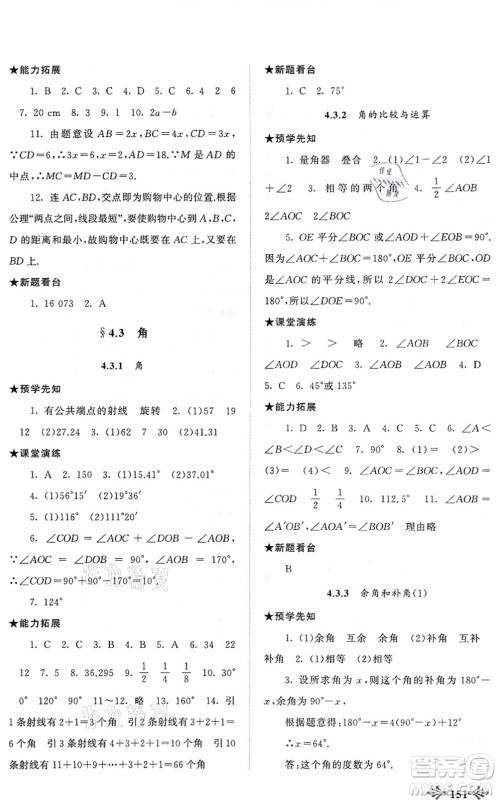 ★能力拓展
1. B　2. C　3. C　4. D　5. C　4　2　6
7. 20 cm　8. D　9. D　10. 2a－b
11. 由题意设 AB＝2x, BC＝4x, CD＝3x,
∵CD＝6, ∴3x＝6, x＝2. ∵M 是 AD 的
中点, ∴MC＝MD－CD＝3.
12. 连 AC, BD 交点即购物中心的位置. 根据
公理“两点之间, 线段最短”, 要使购物中心到 A, B, C,
D 的距离和最小, 购物中心既要在 AC 上, 又要在
BD 上.
★新题看台
1. 16 073　2. A
§4.3　角
4.3.1　角
★预学先知
1. 有公共端点的射线　旋转　2. (1)57　19
12　(2)27.24　3. (1)90　(2)43.31
★课堂演练
1. A　2. 150　3. (1)15.41°　(2)37.01°
4. (1)56°15′　(2)27°22′12″
5. (1)116°　(2)106°25′
6. ∠COD ＝ ∠AOC ＋ ∠DOB － ∠AOB,
∵∠AOC ＝ ∠DOB ＝ 90°, ∠AOB ＝ 170°,
∴∠COD＝90°＋90°－170°＝10°.
7. 124°
★能力拓展
1. C　2. D　3. B　4. B　5. A　6. 34　22
12　7. 5　8. 36.295　9. 1/2　1/4　1/8　10. 30°
0°　120°　90°　11. C　12. D　13. C　14. 引
1 条射线有 2＋1＝3 个角　引 2 条射线有 3＋2＋1＝
6 个角　引 3 条射线有 4＋3＋2＋1＝10 个角　引
10 条射线有 11＋10＋9＋…＋3＋2＋1＝66 个角
★新题看台
1. C　2. 75°
4.3.2　角的比较与运算
★预学先知
1. 量角器　叠合　2. (1)∠1－∠2　(2)∠1
＋∠2　3. 相等的两个角　4. 1/2　∠AOB
∠AOC　2　2
5. OE 平分∠BOC, OD 平分∠AOC, 可以得出
因为∠AOC＋∠BOC＝180°, OE 平分∠BOC, OD
是∠AOC 的平分线, 所以∠COD＋∠COE＝
180°÷2＝90°. 所以∠DOE＝90°.
★课堂演练
1. ＞　＞　略　2. ∠AOC　∠BOC
∠AOD　∠DOB　3. ∠AOB　∠AOD　4. D
5. C　6. 45°或 135°
★能力拓展
1. D　2. D　3. B　4. C　5. C　6. ∠A＜
∠B＜∠D＜∠C　7. (1)＜　(2)＞　(3)＝
(4)＝　8. (1)∠AOC　(2)∠AOD　∠BOC
∠COD　1/2　1/2　9. 180°　10. 112.5°　11. ∠AOB＞
∠A′OB′, ∠AOA′＝∠BOB′　理由略
★新题看台
B
4.3.3　余角和补角(1)
★预学先知
1. (1)余角　互余　余角　(2)补角　互补
补角　2. (1)相等　(2)相等
3. 设所求角为 x°, 这个角的补角为 180°－x°,
余角为 90°－x°.
根据题意得: 180°－x°＝4(90°－x°)－12°,
∴x°＝64°.
答: 这个角为 64°.
151